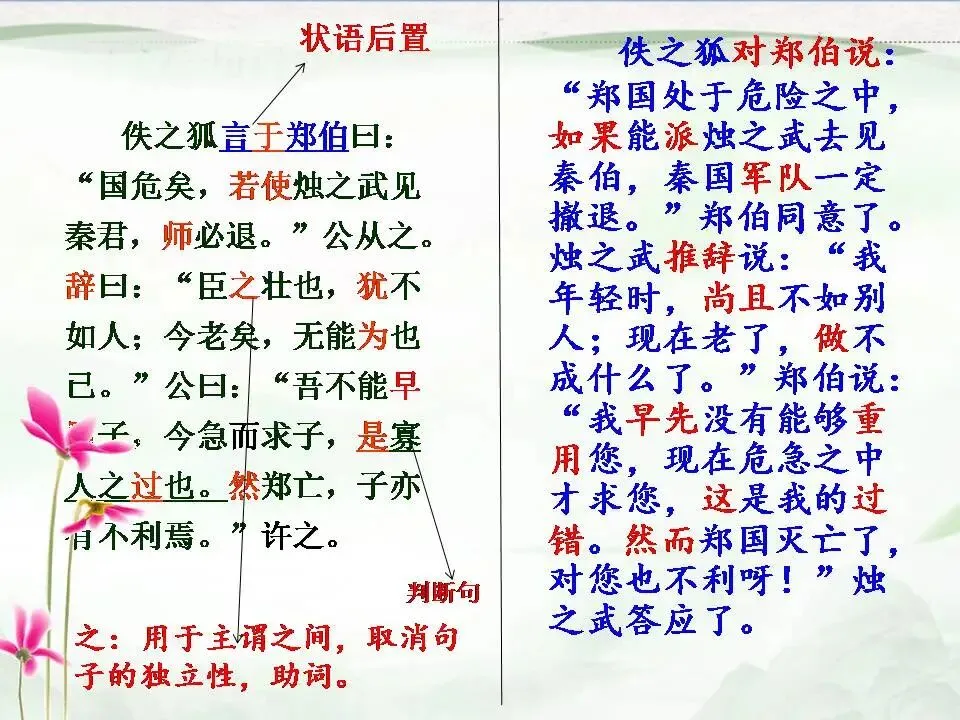 状语后置
佚之狐言于郑伯曰：
“国危矣，若使烛之武见
秦君，师必退。”公从之。
辞曰：“臣之壮也，犹不
如人；今老矣，无能为也
已。”公曰：“吾不能早
子，今急而求子，是寡
人之过也。然郑亡，子亦
有不利焉。”许之。
判断句
之：用于主谓之间，取消句
子的独立性，助词。
佚之狐对郑伯说：
“郑国处于危险之中，
如果能派烛之武去见
秦伯，秦国军队一定
撤退。”郑伯同意了。
烛之武推辞说：“我
年轻时，尚且不如别
人；现在老了，做不
成什么了。”郑伯说：
“我早先没有能够重
用您，现在危急之中
才求您，这是我的过
错。然而郑国灭亡了，
对您也不利呀！”烛
之武答应了。